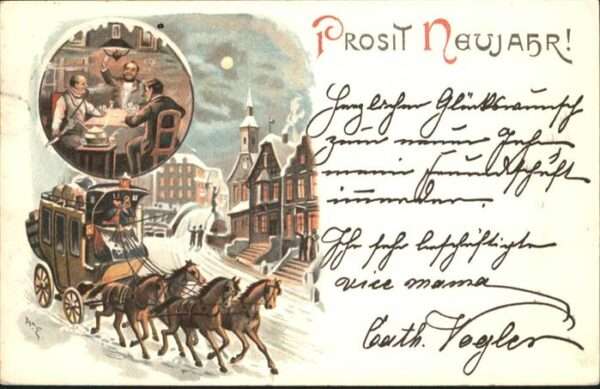 PROSIT NEUJAHR!
Herzlichen Glückwunsch
zum neuen Jahr
meine Freundschaft
immerdar.
Ihr sehr beschäftigte
vice mama
Cath. Vogler